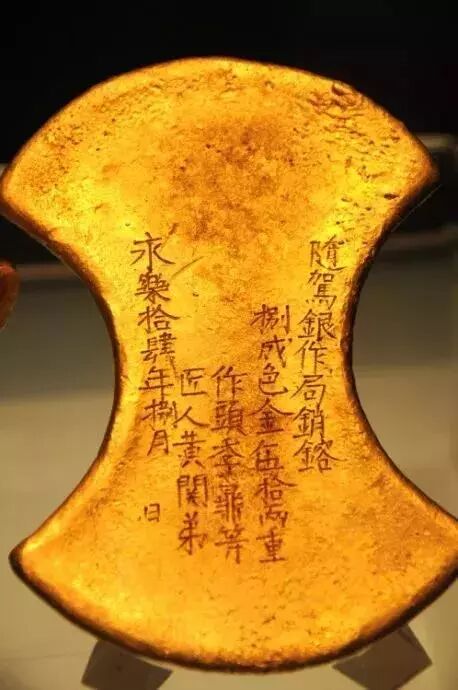 隨駕銀作局銷鎔
捌成色金伍拾兩重
作頭季鼎等
匠人黃關弟
永樂拾肆年捌月 日